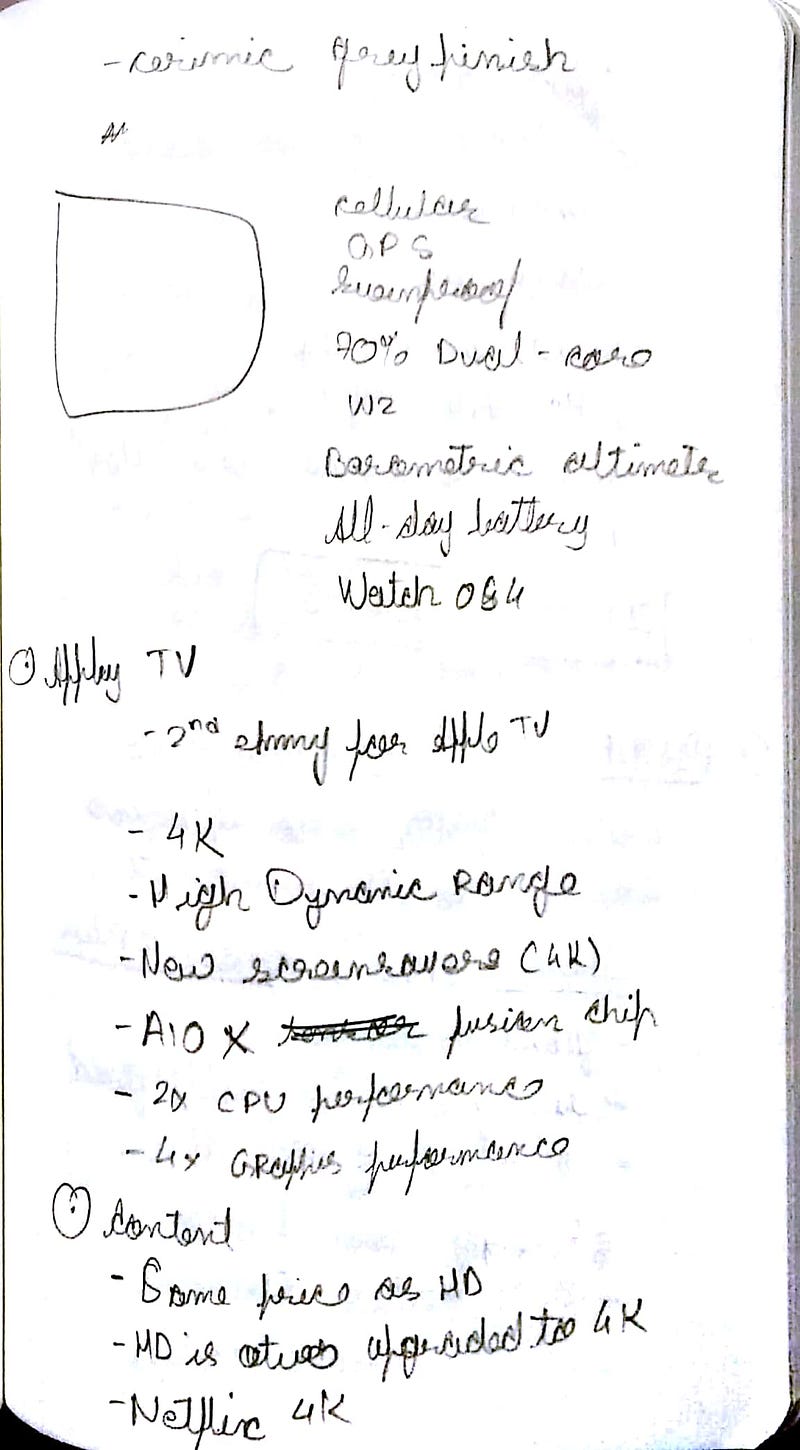 - cerimic Grey finish
cellular
GPS
swimproof
70% Dual - core
W2
Barometric altimeter
All-day battery
Watch OS4
Apple TV
- 2nd emmy for Apple TV
- 4K
- High Dynamic Range
- New screensavers (4K)
- A10 X fusion chip
- 2x CPU performance
- 4x GRaphics performance
Content
- Same price as HD
- HD is upgraded to 4K
- Netflix 4K